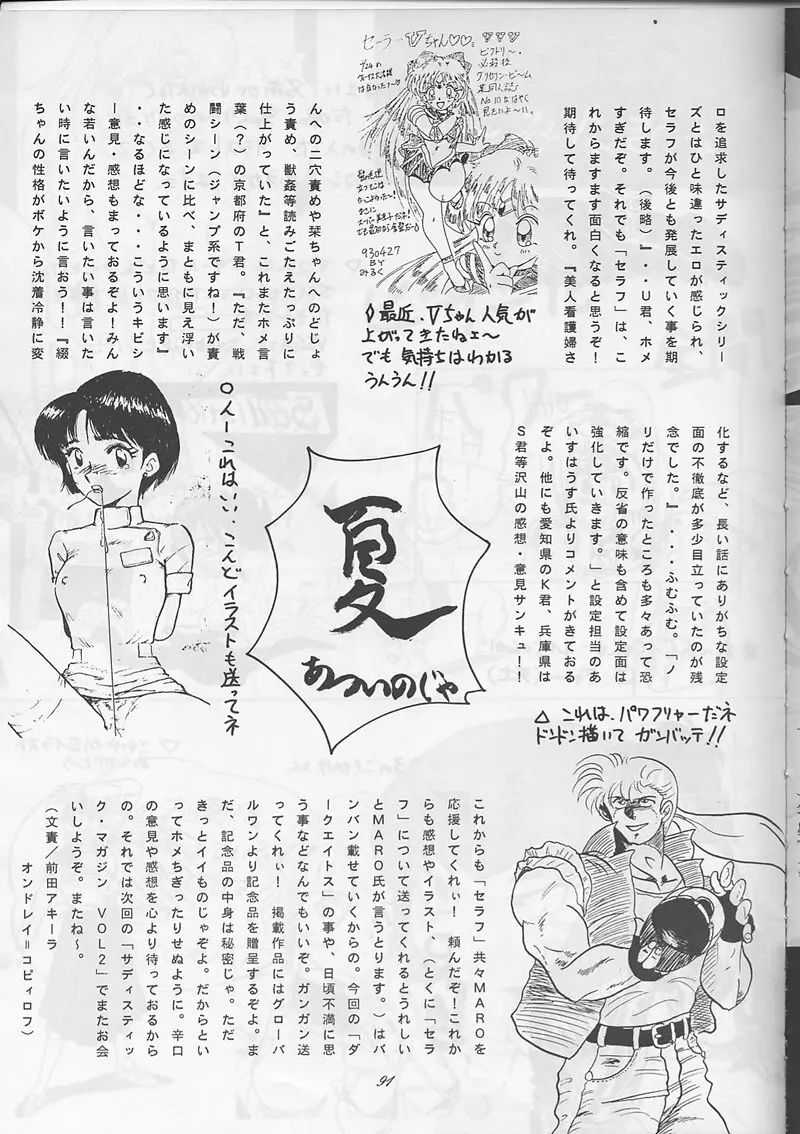 ロを追求したサディスティックシリー
ズとはひと味違ったエロが感じられ、
セラフが今後とも発展していく事を期
待します。(後略)』・・U君、ホメ
すぎだぞ。それでも「セラフ」は、こ
れからますます面白くなると思うぞ!
期待して待ってくれ。『美人看護婦さ
セーラーVちゃん♡♡。
ビクトリー・
必殺技
No.10はやく
見たいよ〜い。
930427
BY
みるく
◊最近、Vちゃん人気が
上がってきたねェ〜
でも気持ちはわかる
うんうん!!
んへの二穴責めや栞ちゃんへのどじょ
う責め、獣姦等読みごたえたっぷりに
仕上がっていた』と、これまたホメ言
葉(?)の京都府のT君。『ただ、戦
闘シーン(ジャンプ系ですね!)が責
めのシーンに比べ、まともに見え浮い
た感じになっているように思います』
・・なるほどな・・・こういうキビシ
ー意見・感想もまっておるぞよ!みん
な若いんだから、言いたい事は言いた
い時に言いたいように言おう!!『綴
ちゃんの性格がボケから沈着冷静に変
化するなど、長い話にありがちな設定
面の不徹底が多少目立っていたのが残
念でした。』・・・ふむふむ。「ノ
リだけで作ったところも多々あって恐
縮です。反省の意味も含めて設定面は
強化していきます。」と設定担当のあ
いすはうす氏よりコメントがきておる
ぞよ。他にも愛知県のK君、兵庫県は
S君等沢山の感想・意見サンキュ!!
夏
あついのじゃ
○人ーこれはいい、こんどイラストも送ってネ
△ これは、パワフリャーだネ
ドンドン描いて ガンバッテ!!
これからも「セラフ」共々MAROを
応援してくれぃ! 頼んだぞ!これか
らも感想やイラスト、(とくに「セラ
フ」について送ってくれるとうれしい
とMARO氏が言うとります。)はバ
ンバン載せていくからの。今回の「ダ
ークエイトス」の事や、日頃不満に思
う事などなんでもいいぞ。ガンガン送
ってくれぃ! 掲載作品にはグローバ
ルワンより記念品を贈呈するぞよ。ま
だ、記念品の中身は秘密じゃ。ただ
きっとイイものじゃぞよ。だからとい
ってホメちぎったりせぬように。辛口
の意見や感想を心より待っておるから
の。それでは次回の「サディスティッ
ク・マガジン VOL2」でまたお会
いしようぞ。またね〜。
(文責/前田アキーラ
オンドレイ=コピィロフ)
91